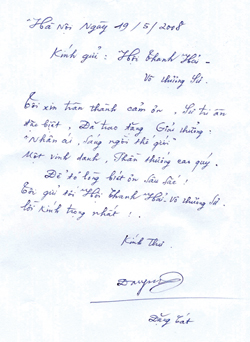 "Hà Nội Ngày 19/5/2008
Kính gửi: Hội Thanh Hải -
Vô thường Sư.
Tôi xin trân thành cảm ơn, Sư tri ân
đặc biệt, Đã trao tặng Giải thưởng:
"Nhân ái, sang ngời thế giới"
Một vinh danh, Phần thưởng cao quý.
Để tỏ lòng biết ơn Sâu Sắc!
Tôi gửi tới Hội Thanh Hải. Vô thường Sư
lời Kính trọng nhất!.
Kính Thư
Đặng Tát